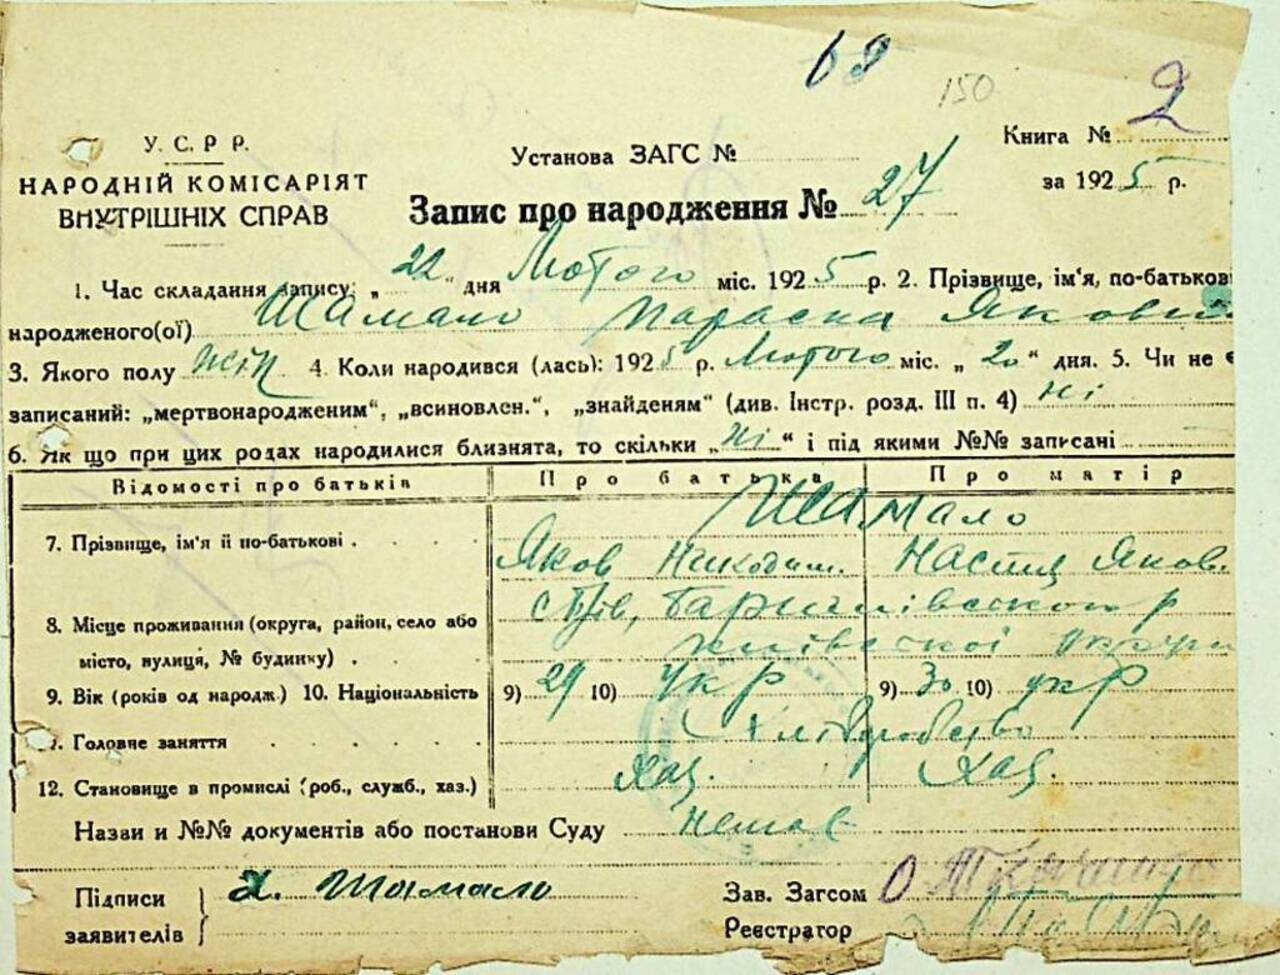 68
150
У. С. Р. Р.
НАРОДНІЙ КОМІСАРІЯТ
ВНУТРІШНІХ СПРАВ
Установа ЗАГС №
Книга № 2
за 1925 р.
Запис про народження № 27
1. Час складання запису: „22“ дня Лютого міс. 1925 р. 2. Прізвище, ім'я, по-батькові
народженого(ої) Шамало Параска Яковл
3. Якого полу жін 4. Коли народився (лась): 1925 р. Лютого міс. „20“ дня. 5. Чи не є
записаний: „мертвонародженим“, „всиновлен.“, „знайденям“ (див. Інстр. розд. III п. 4) Ні
6. Як що при цих родах народилися близнята, то скільки „Ні“ і під якими №№ записані
Відомості про батьків Про батька Про матір
Шамало
7. Прізвище, ім'я й по-батькові Яков Никодим. Настя Яков.
8. Місце проживання (округа, район, село або с
місто, вулиця, № будинку) київської округи
9. Вік (років од народж.) 10. Національність 9) 29 10) Укр 9) 30 10) укр
Головне заняття Хліборобство
12. Становище в промислі (роб., служб., хаз.) Хаз. Хаз.
Назви и №№ документів або постанови Суду немає
Підписи
заявителів
Я. Шамало
Зав. Загсом
Реєстратор